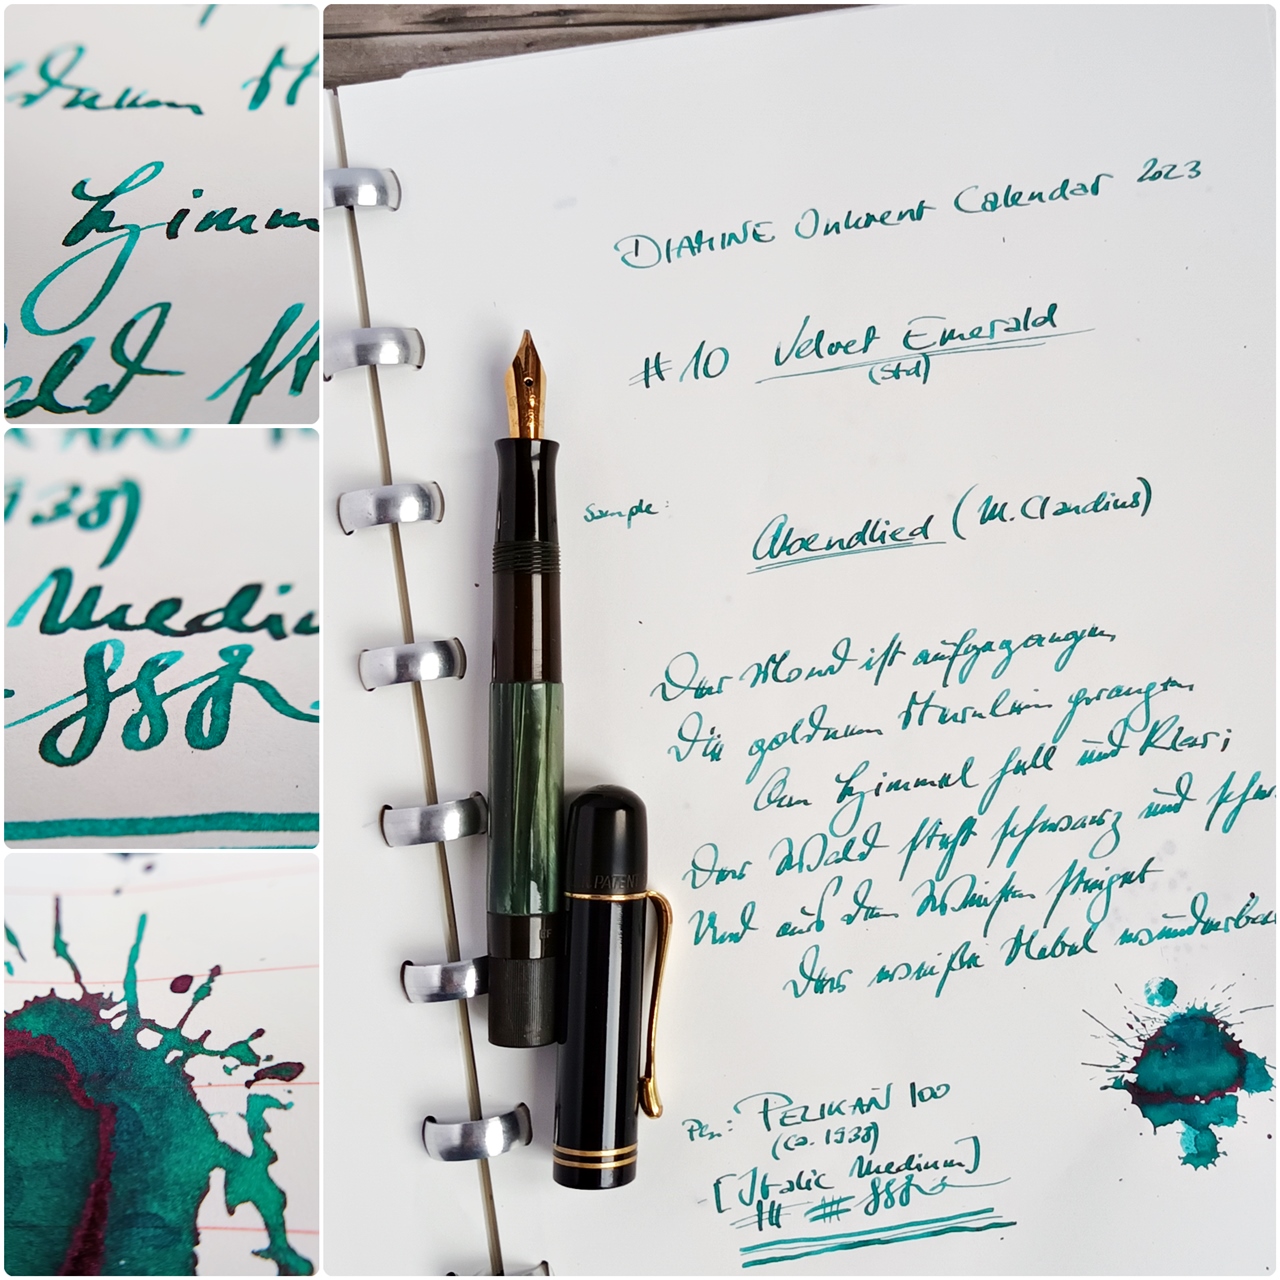 oldnen St
Himm
ald st
938)
Mediu
DIAMINE Inkvent Calendar 2023
#10 Velvet Emerald
(Std)
Sample:
Abendlied (M. Claudius)
Der Mond ist aufgegangen,
Die goldnen Sternlein prangen
Am Himmel hell und klar;
Der Wald steht schwarz und schw
Und aus den Wiesen steiget
Der weiße Nebel wunderba
Pen: PELIKAN 100
(ca. 1938)
[Italic Medium]
PATENT
EF